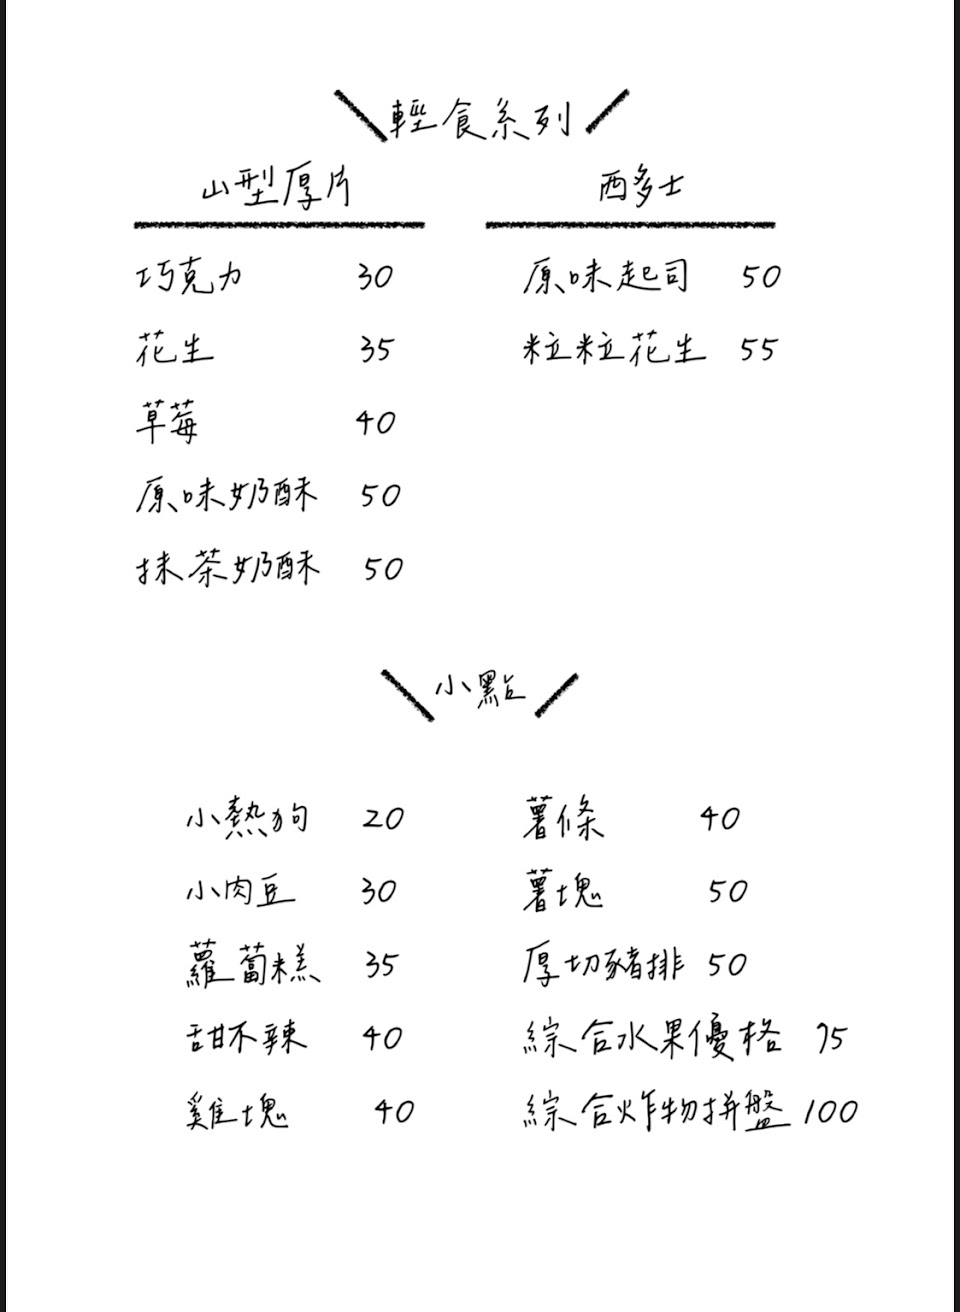 輕食系列
山型厚片
巧克力 30
花生 35
草莓 40
原味奶酥 50
抹茶奶酥 50
西多士
原味起司 50
粒粒花生 55
小點
小熱狗 20
小肉豆 30
蘿蔔糕 35
甜不辣 40
雞塊 40
薯條 40
薯塊 50
厚切豬排 50
綜合水果優格 75
綜合炸物拼盤 100